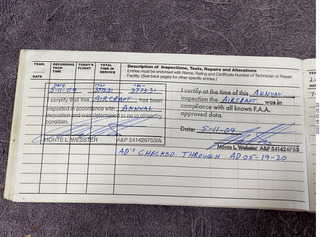 YEAR: RECORDING TACH TIME TODAY'S FLIGHT TOTAL TIME IN SERVICE Description of Inspections, Tests, Repairs and Alterations
Entries must be endorsed with Name, Rating and Certificate Number of Technician or Repair
Facility. (See back pages for other specific entries.)
DATE
DATE
5-11-09 3773.31
I certify that this AIRCRAFT has been
inspected in accordance with ANNUAL
inspection and was determined to be in airworthy
condition.
MONTE L. WEBSTER A&P
I certify at the time of this ANNUAL
inspection the AIRCRAFT was in
compliance with all known F.A.A.
approved data.
Date: 5-11-09
Monte L. Webster A&P 541426753
AD'S CHECKED THROUGH AD 05-19-20